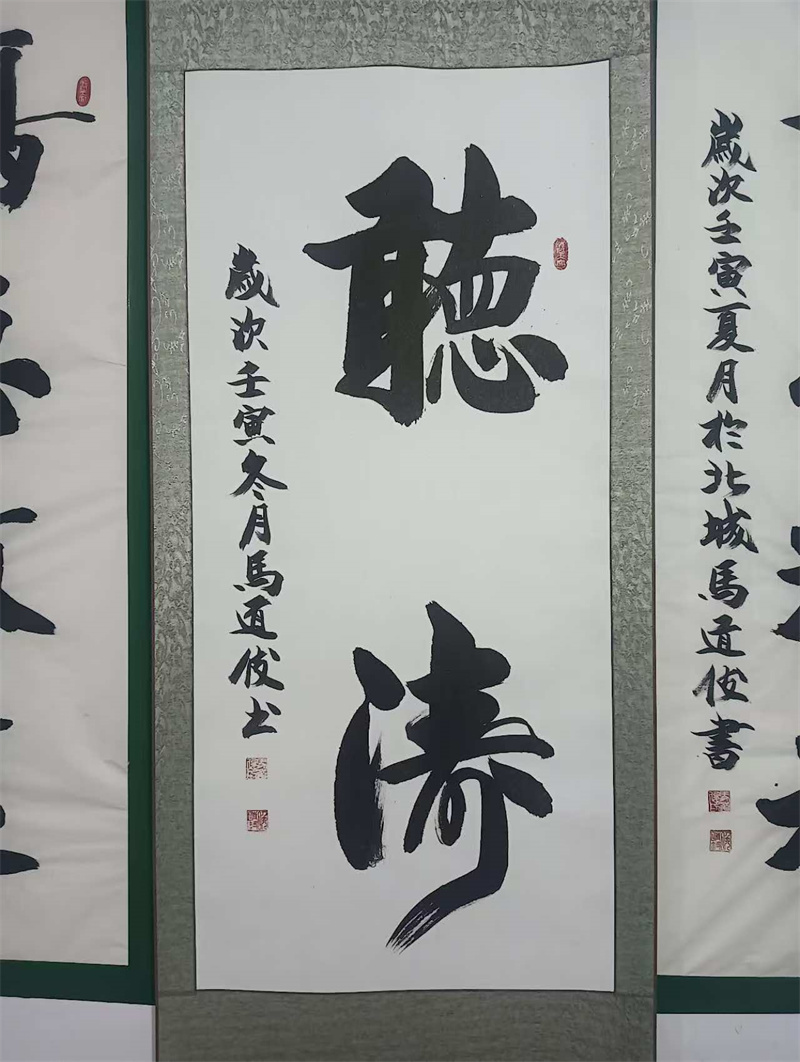 歲次壬寅夏月於北城馬道俊書
聽
濤
歲次壬寅冬月馬道俊书